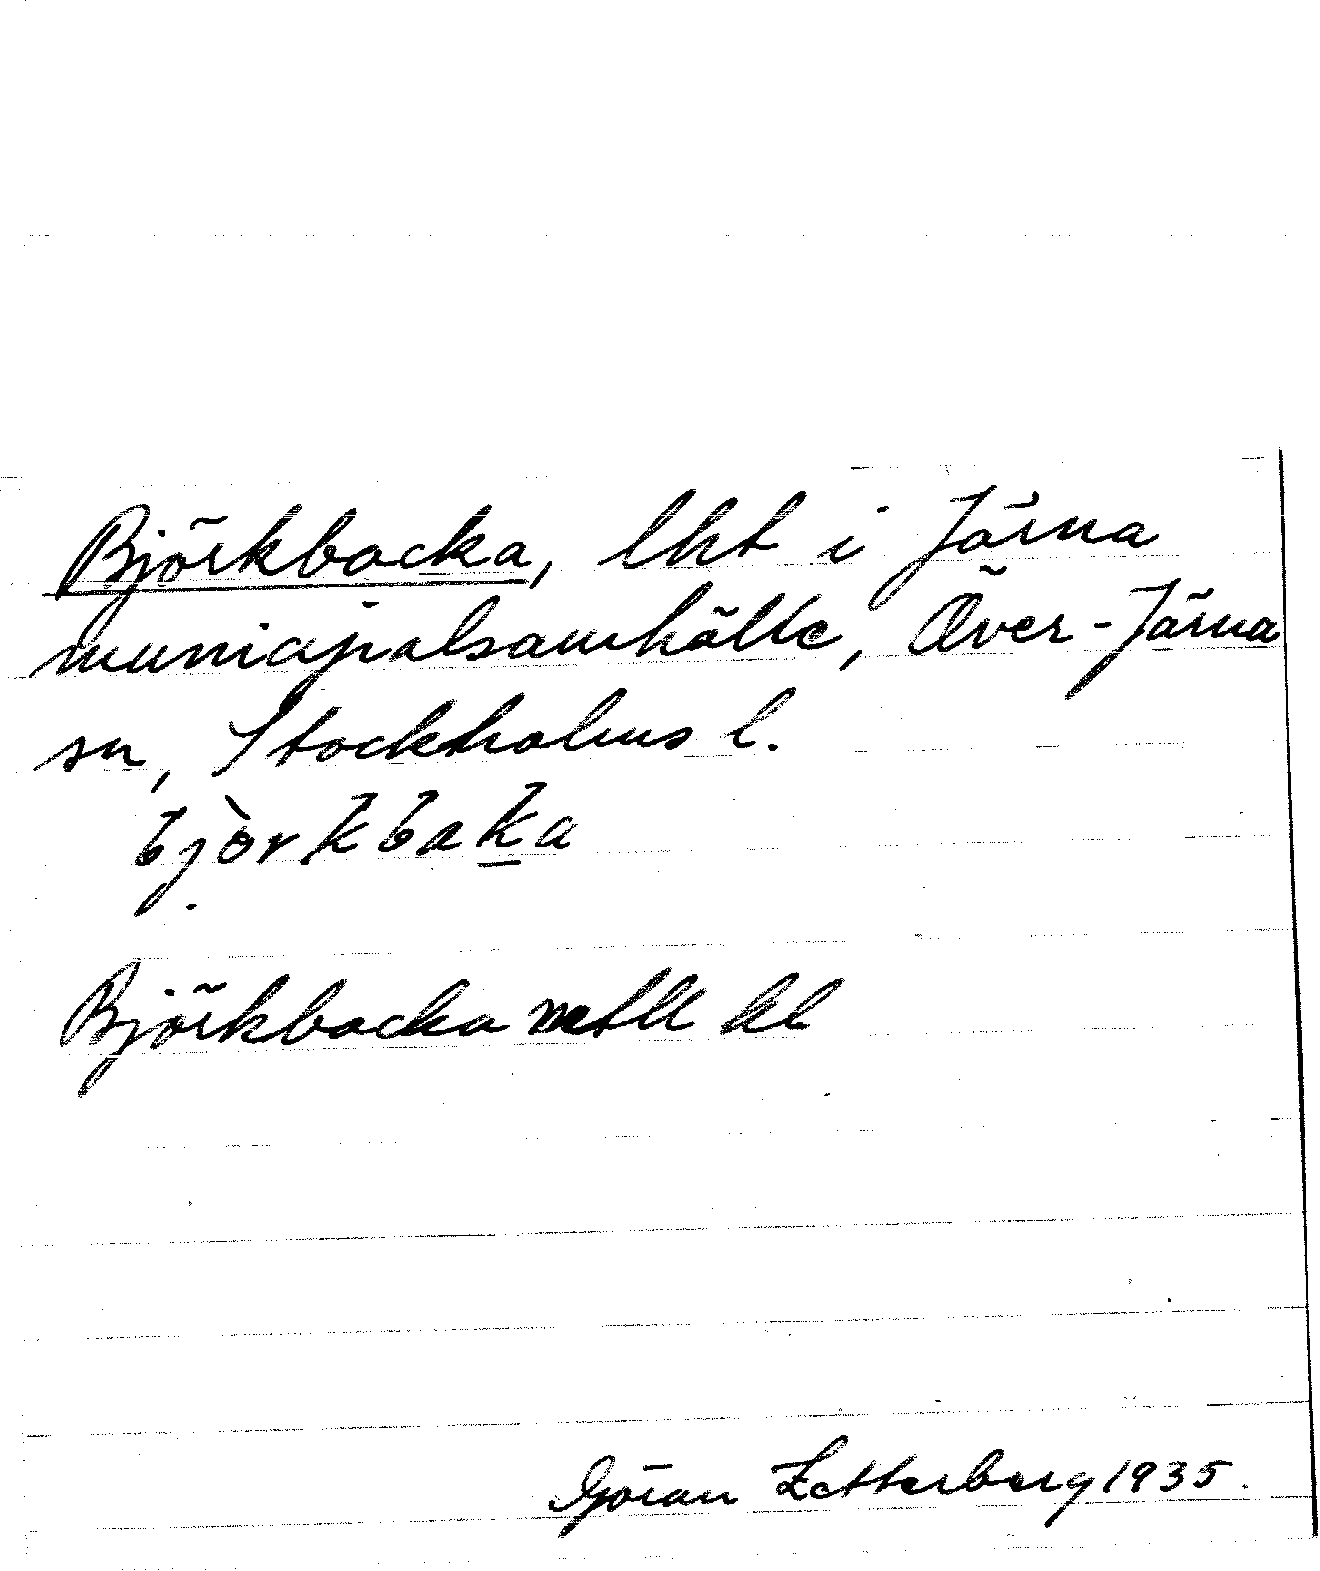 Björkbacka, lht i Järna
municipalsamhälle, Över-Järna
sn, Stockholms l.
bjòrkbaka
Björkbacka mtll kl
Göran Zetterberg 1935.